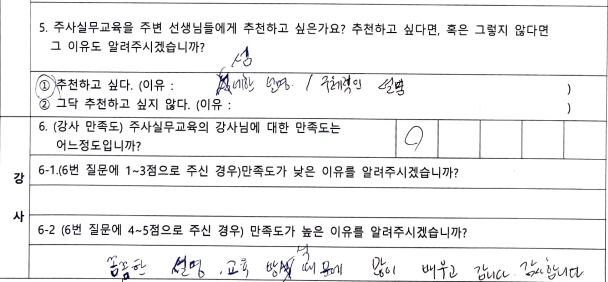 5. 주사실무교육을 주변 선생님들에게 추천하고 싶은가요? 추천하고 싶다면, 혹은 그렇지 않다면
그 이유도 알려주시겠습니까?
① 추천하고 싶다. (이유 : 상세한 설명 / 구체적인 설명 )
② 그닥 추천하고 싶지 않다. (이유 : )
6. (강사 만족도) 주사실무교육의 강사님에 대한 만족도는
어느정도입니까?
강사
6-1.(6번 질문에 1~3점으로 주신 경우)만족도가 낮은 이유를 알려주시겠습니까?
6-2 (6번 질문에 4~5점으로 주신 경우) 만족도가 높은 이유를 알려주시겠습니까?
꼼꼼한 설명, 교육 방식 때문에 많이 배우고 갑니다. 감사합니다